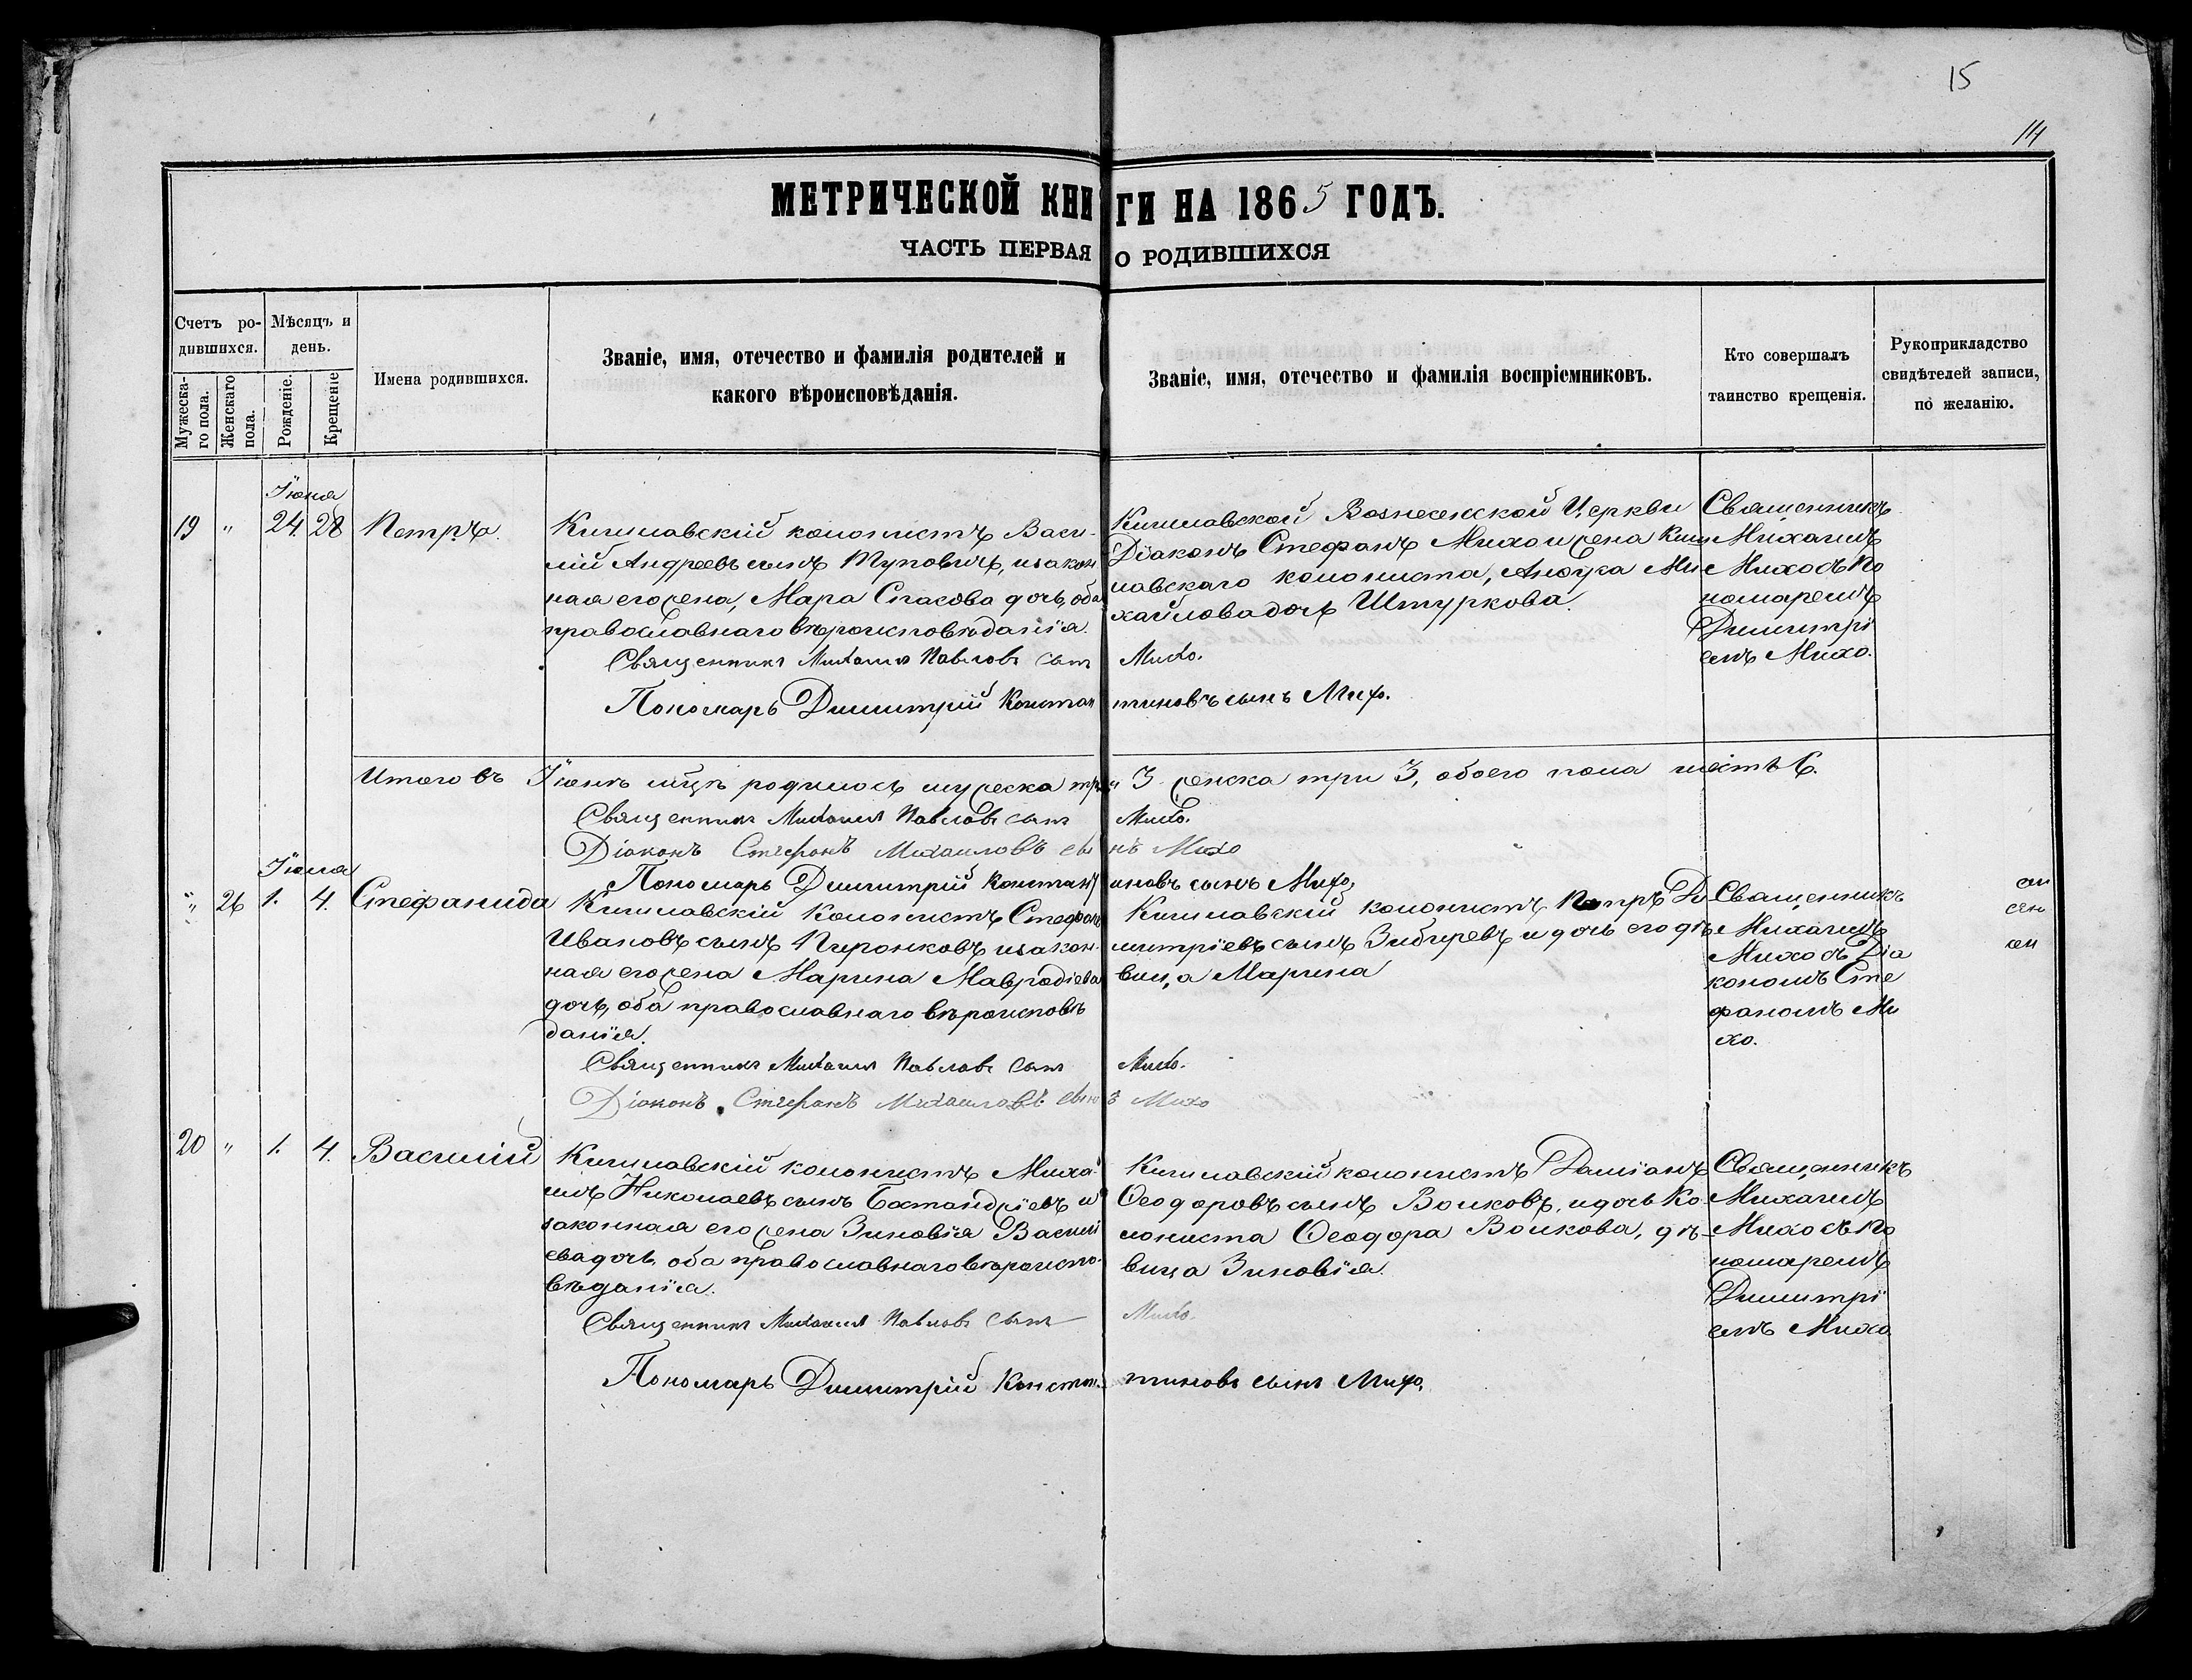 15
14
МЕТРИЧЕСКОЙ КНИГИ НА 1865 ГОДЪ.
ЧАСТЬ ПЕРВАЯ О РОДИВШИХСЯ
Счетъ ро-
дившихся.
Мѣсяцъ и
день.
Мужеска-
го пола.
Женскаго
пола.
Рожденіе.
Крещеніе
Имена родившихся.
Званіе, имя, отечество и фамилія родителей и
какого вѣроисповѣданія.
Званіе, имя, отечество и фамилія воспріемниковъ.
Кто совершалъ
таинство крещенія.
Рукоприкладство
свидѣтелей записи,
по желанію.
Іюня
19 " 24. 28 Петръ.
Кишлавскій колонистъ Васи-
лій Андреевъ сынъ Туповичъ, и закон
ная его жена, Мара Спасова дочь, оба
православнаго вѣроисповѣданія.
Кишлавской Вознесенской Церкви
Діаконъ Стефанъ Михо и жена Киш
лавскаго колониста, Анѳуса Ми
хайлова дочь Штуркова.
Священникъ
Михаилъ
Михо съ По
номаремъ
Димитрі
емъ Михо.
Священникъ Михаилъ Павловъ сынъ Михо.
Пономарь Димитрій Константиновъ сынъ Михо.
Итого въ Іюнѣ мцѣ родилось мужеска три 3 женска три 3, обоего пола шесть 6.
Священникъ Михаилъ Павловъ сынъ Михо.
Діаконъ Стефанъ Михаиловъ сынъ Михо
Пономарь Димитрій Константиновъ сынъ Михо,
Іюля
" 26 1. 4 Стефанида
Кишлавскій колонистъ Стефанъ
Ивановъ сынъ Пиронковъ и закон-
ная его жена Марина Мавродіева
дочь, оба православнаго вѣроисповѣ
данія.
Кишлавскій колонистъ Петръ Ди
митріевъ сынъ Зибиревъ и дочь его дѣ
вица Марина
Священникъ
Михаилъ
Михо съ Діа
кономъ Сте
фаномъ Ми
хо.
Священникъ Михаилъ Павловъ сынъ Михо.
Діаконъ Стефанъ Михаиловъ сынъ Михо
20 " 1. 4. Василій
Кишлавскій колонистъ Миха-
илъ Николаевъ сынъ Бостанджіевъ и
законная его жена Зиновія Василі
ева дочь, оба православнаго вѣроиспо-
вѣданія.
Кишлавскій колонистъ Даміанъ
Ѳеодоровъ сынъ Волковъ, и дочь Ко-
лониста Ѳеодора Волкова, дѣ-
вица Зиновія.
Священникъ
Михаилъ
Михо съ По
номаремъ
Димитрі
емъ Михо
Священникъ Михаилъ Павловъ сынъ Михо.
Пономарь Димитрій Константиновъ сынъ Михо,